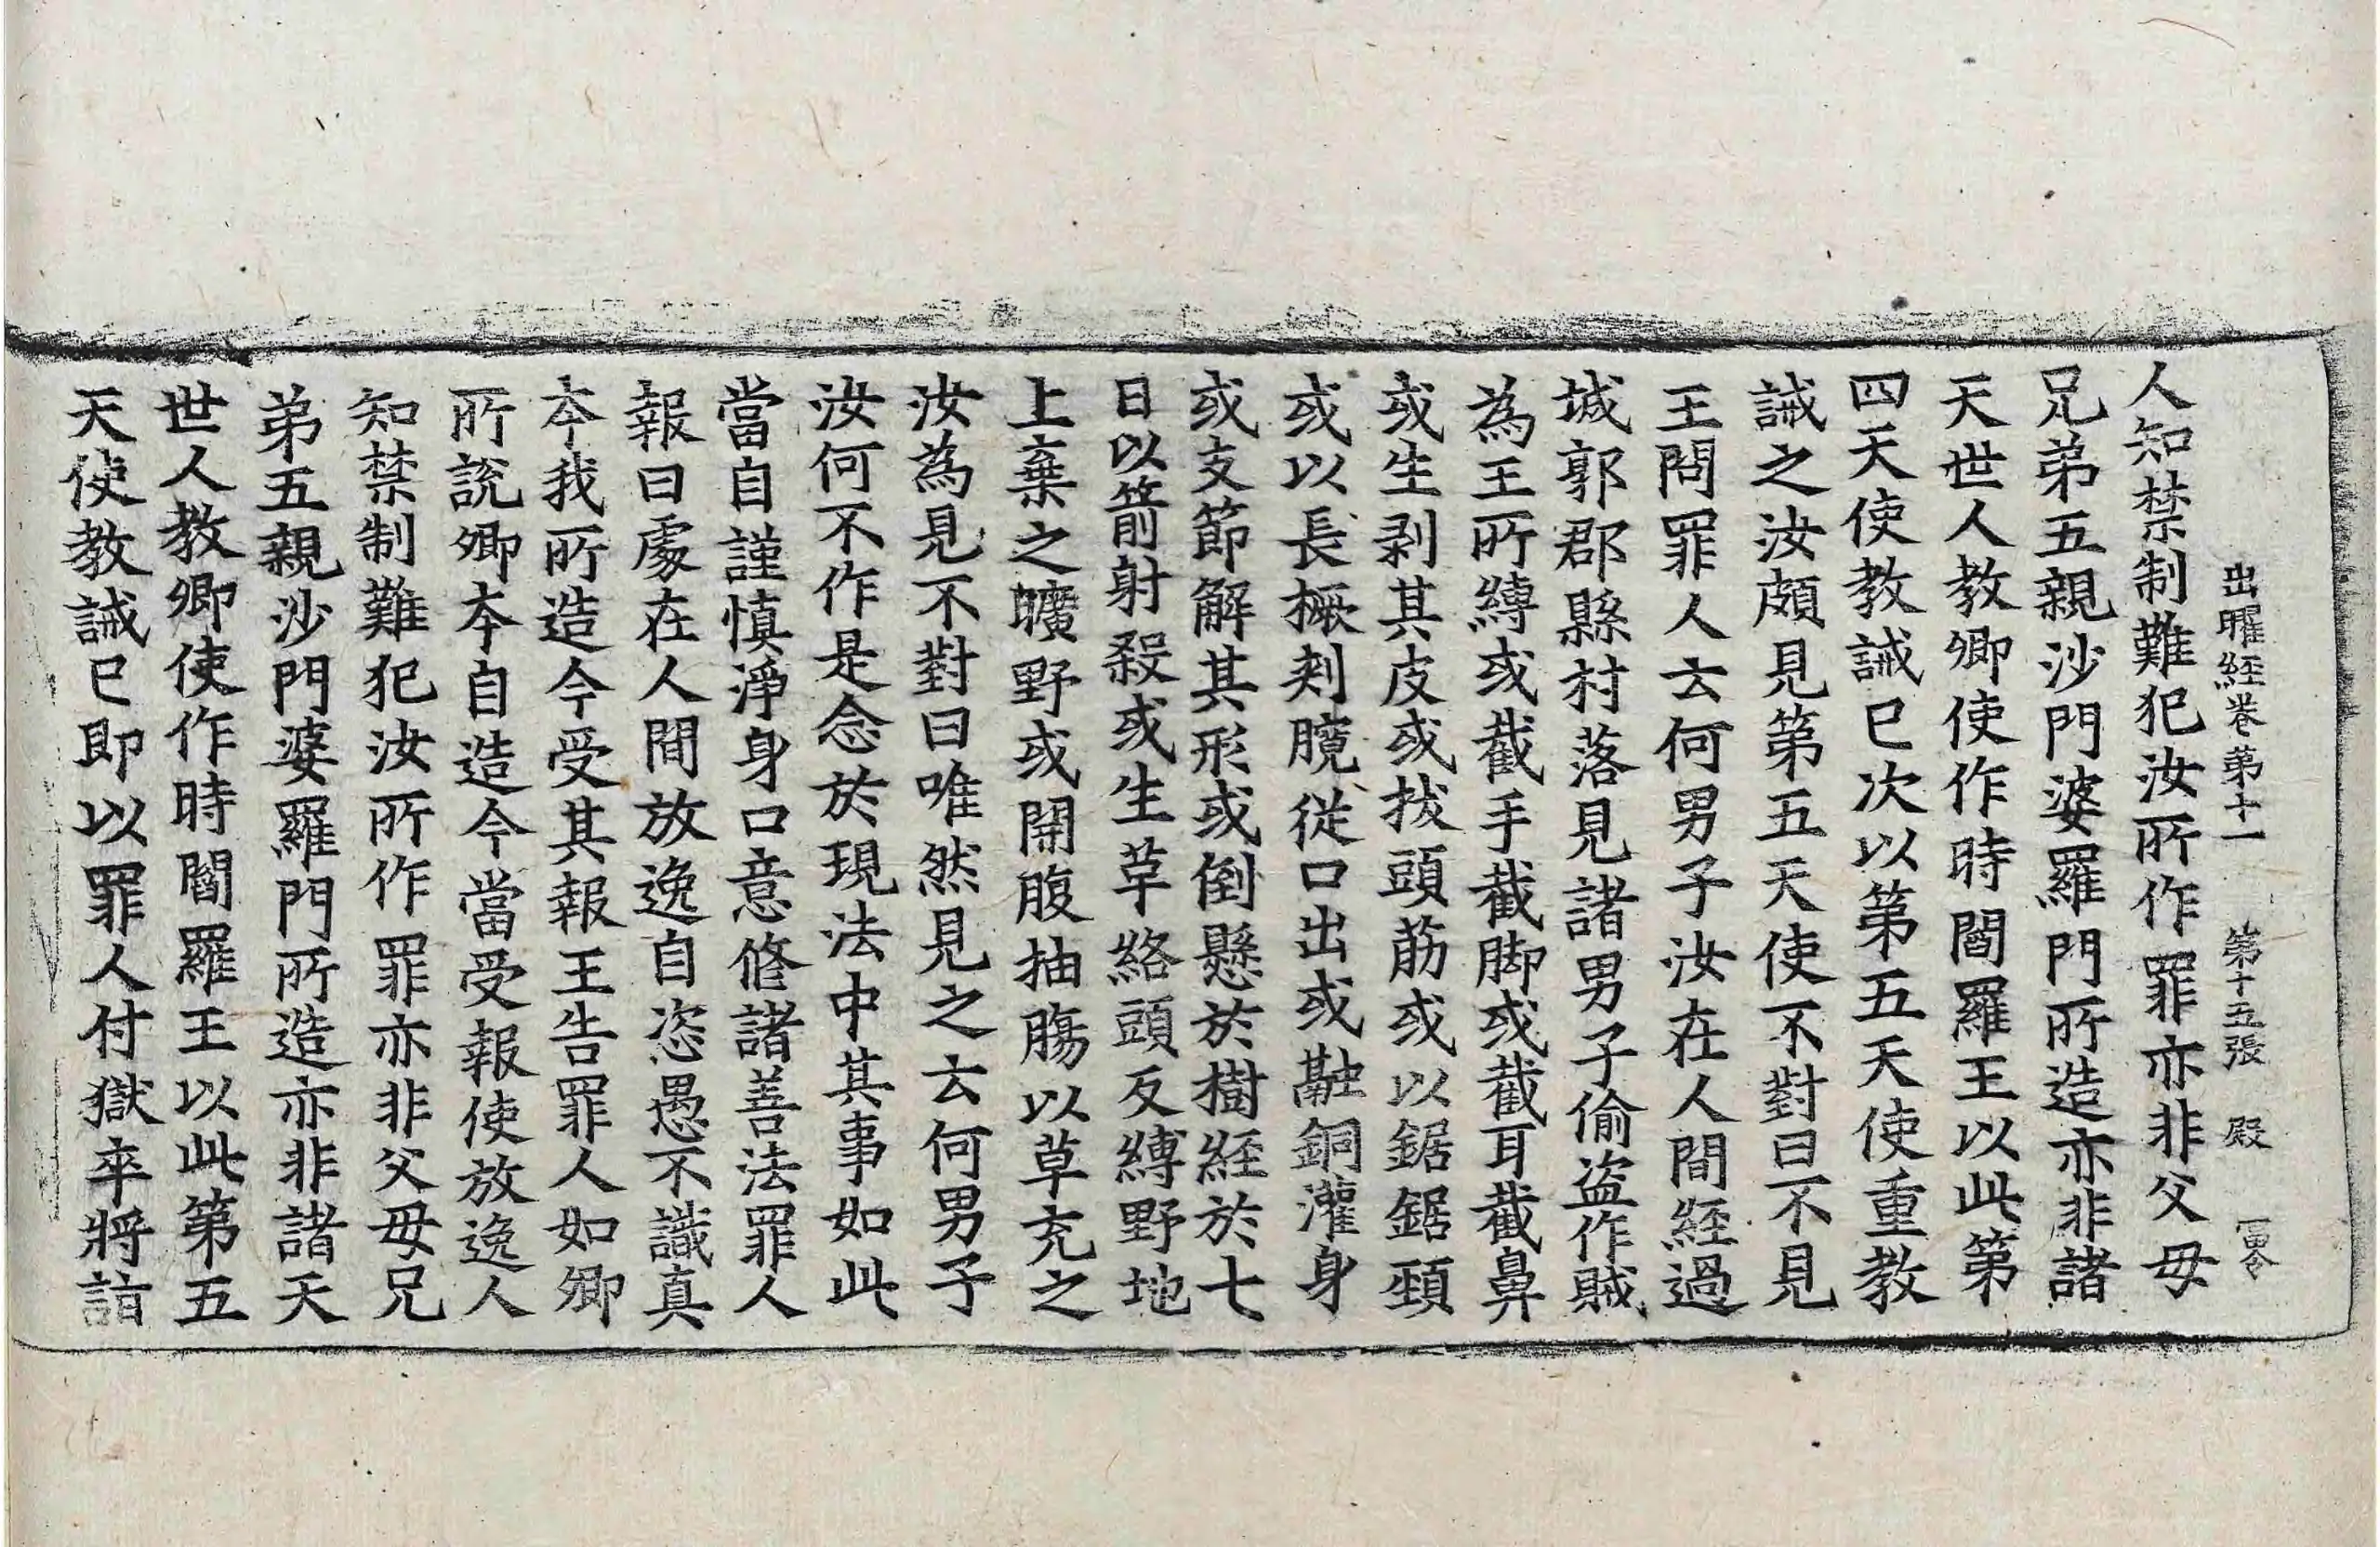 出曜經卷第十一 第十五張 殿
人知禁制難犯汝所作罪亦非父母
兄弟五親沙門婆羅門所造亦非諸
天世人教卿使作時閻羅王以此第
四天使教誡已次以第五天使重教
誡之汝頗見第五天使不對曰不見
王問罪人云何男子汝在人間經過
城郭郡縣村落見諸男子偷盜作賊
為王所縛或截手截脚或截耳截鼻
或生剥其皮或拔頭筋或以鋸鋸頸
或以長橛剗臗從口出或融銅灌身
或支節解其形或倒懸於樹經於七
日以箭射殺或生草絡頭反縛野地
上棄之曠野或開腹抽膓以草充之
汝為見不對曰唯然見之云何男子
汝何不作是念於現法中其事如此
當自謹慎淨身口意修諸善法罪人
報曰處在人間放逸自恣愚不識真
本我所造今受其報王告罪人如卿
所說卿本自造今當受報使放逸人
知禁制難犯汝所作罪亦非父母兄
弟五親沙門婆羅門所造亦非諸天
世人教卿使作時閻羅王以此第五
天使教誡已即以罪人付獄卒將詣